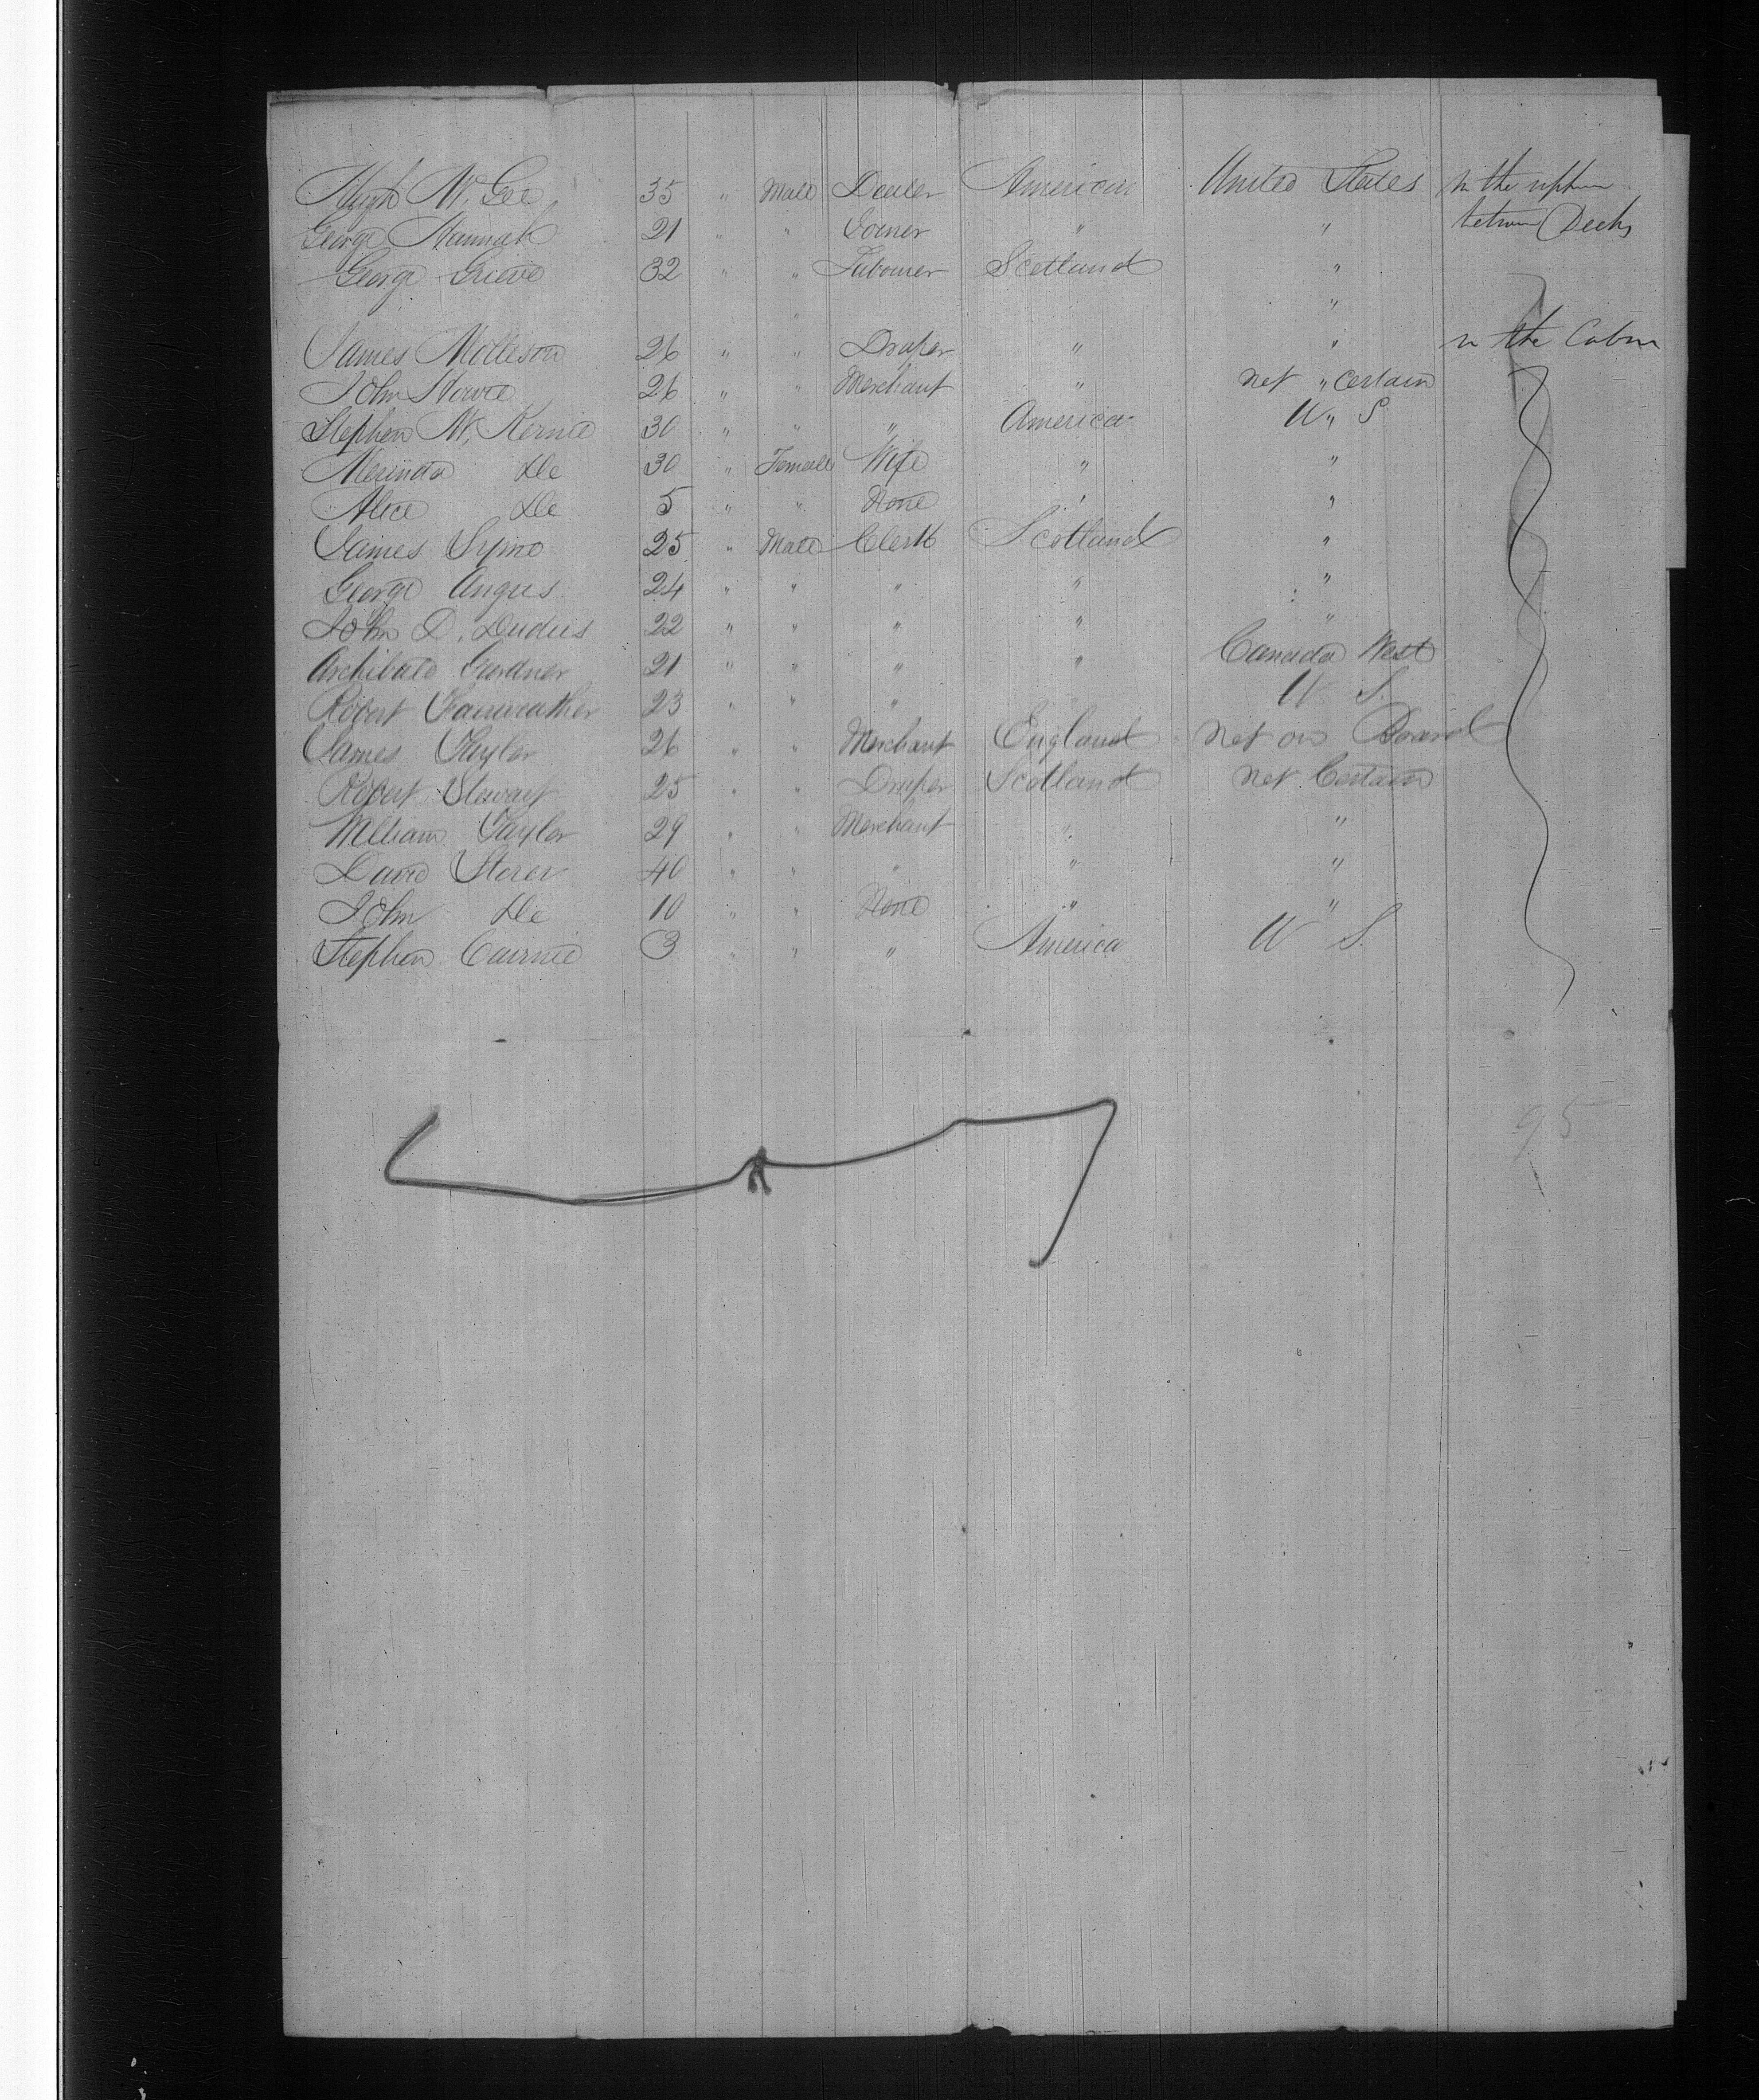 Hugh Mc Gee 35 " Male Dealer American United States In the upper
George Hannah 21 " " Joiner " " between Decks
George Grieve 32 " " Labourer Scotland "
" "
James Molleson 26 " " Draper " " in the Cabin
John Howie 26 " " Merchant " not " certain
Stephen Mc Kernie 30 " " " America U " S
Merinda Do 30 " Female Wife " "
Alice Do 5 " " None " "
James Syme 25 " Male Clerk Scotland "
George Angus 24 " " " " "
John D. Dudus 22 " " " " "
Archibald Gardner 21 " " " " Canada West
Robert Fairweather 23 " " " U S.
James Taylor 26 " " Merchant England not on Board
Robert Stewart 25 " " Draper Scotland not Certain
William Taylor 29 " " Merchant " "
David Storer 40 " " " " "
John Do 10 " " None " "
Stephen Cairnie 3 " " " America U S.
95